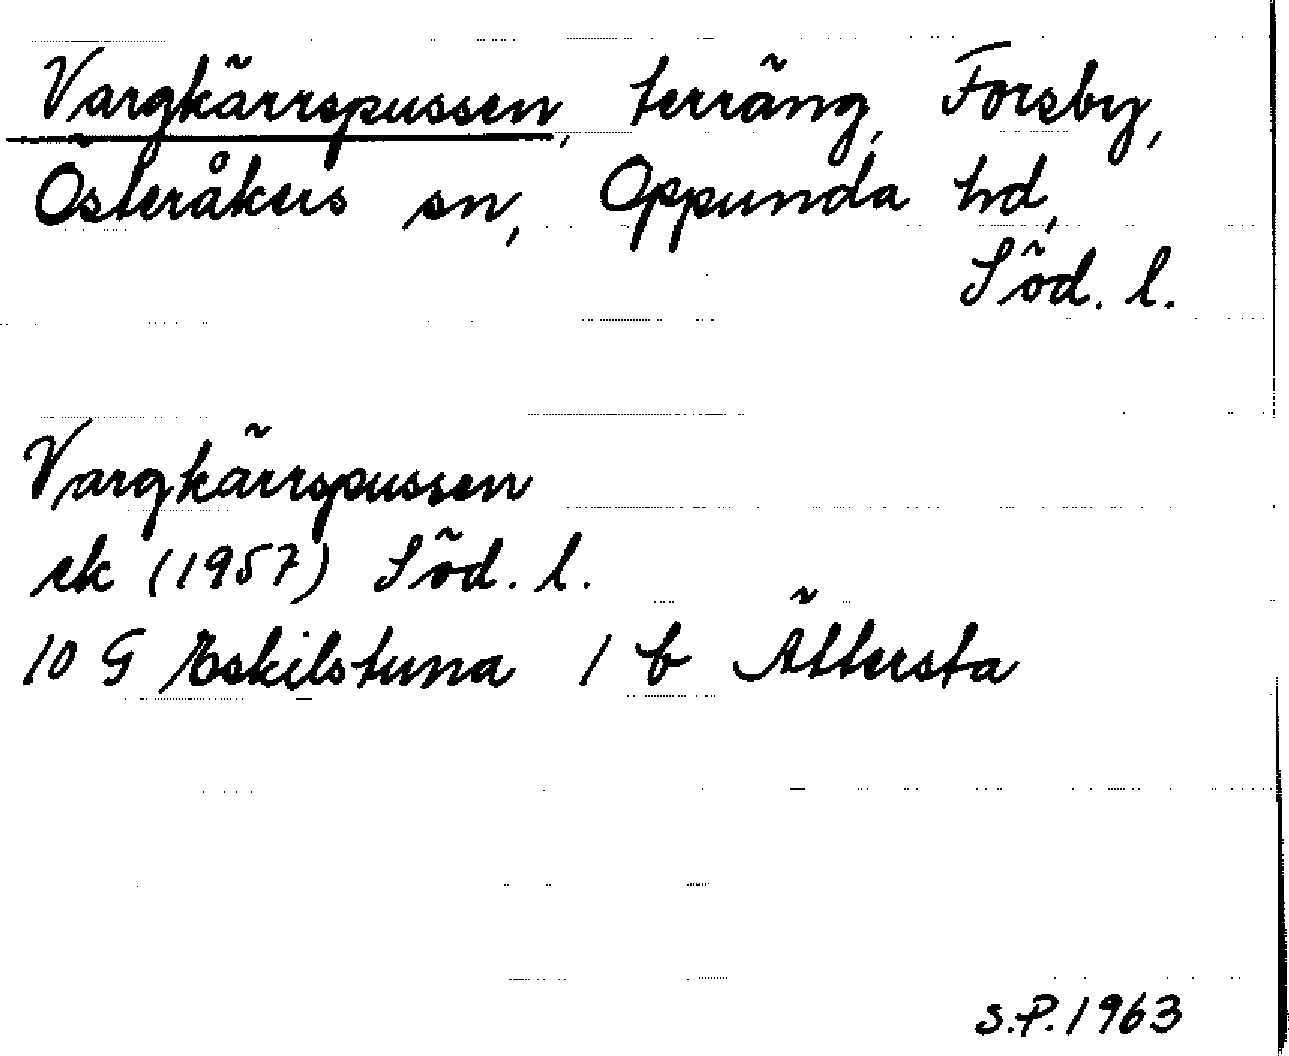 Vargkärrspussen, terräng, Forsby,
Österåkers sn, Oppunda hd,
Söd. l.
Vargkärrspussen
ek (1957) Söd. l.
10 G Eskilstuna 1 b Ättersta
S.P. 1963